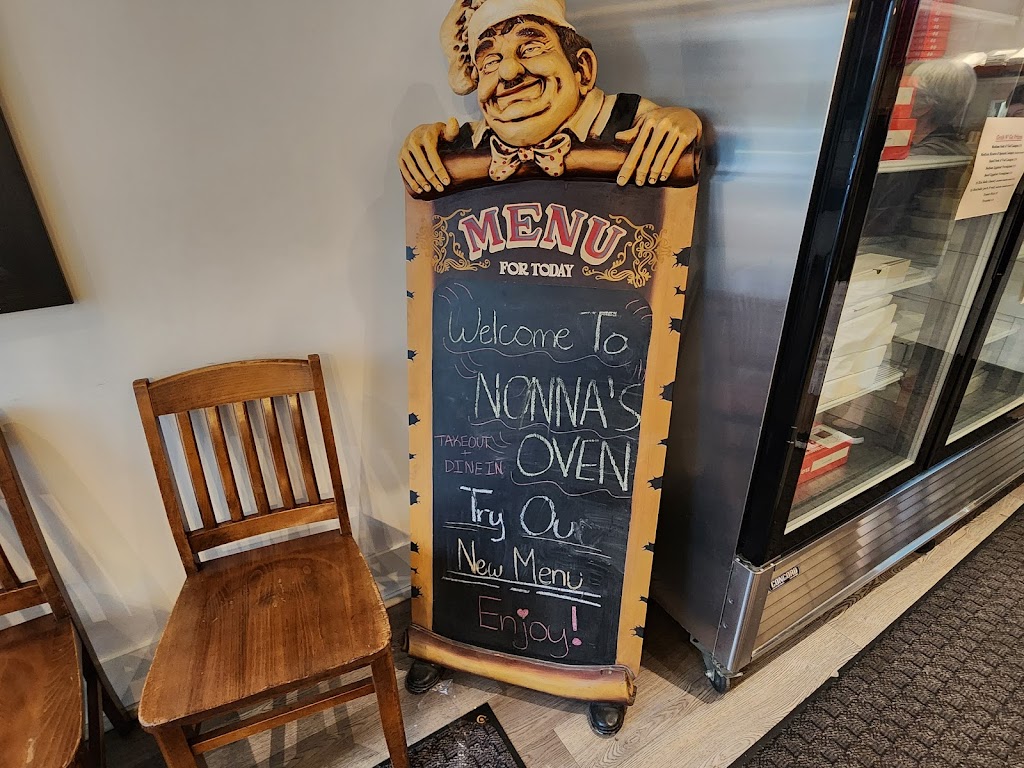 MENU
FOR TODAY
Welcome To
NONNA'S
TAKEOUT
+
DINE IN
OVEN
Try Ou
New Menu
Enjoy!
CONCORD